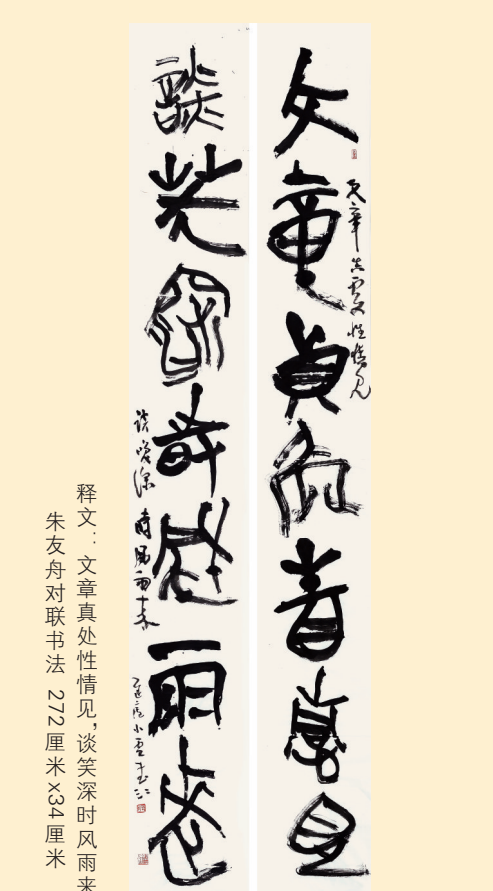 文章真处性情见
文章真处性情见
谈笑深时风雨来
谈笑深
时风雨来
释文：文章真处性情见，谈笑深时风雨来
朱友舟对联书法 272厘米x34厘米